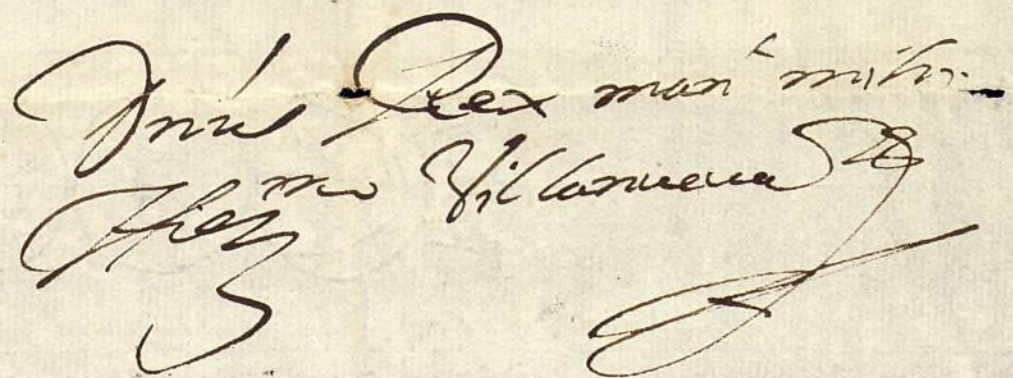 Dnus Rex man.t mihi
Hier.mo Villanueva